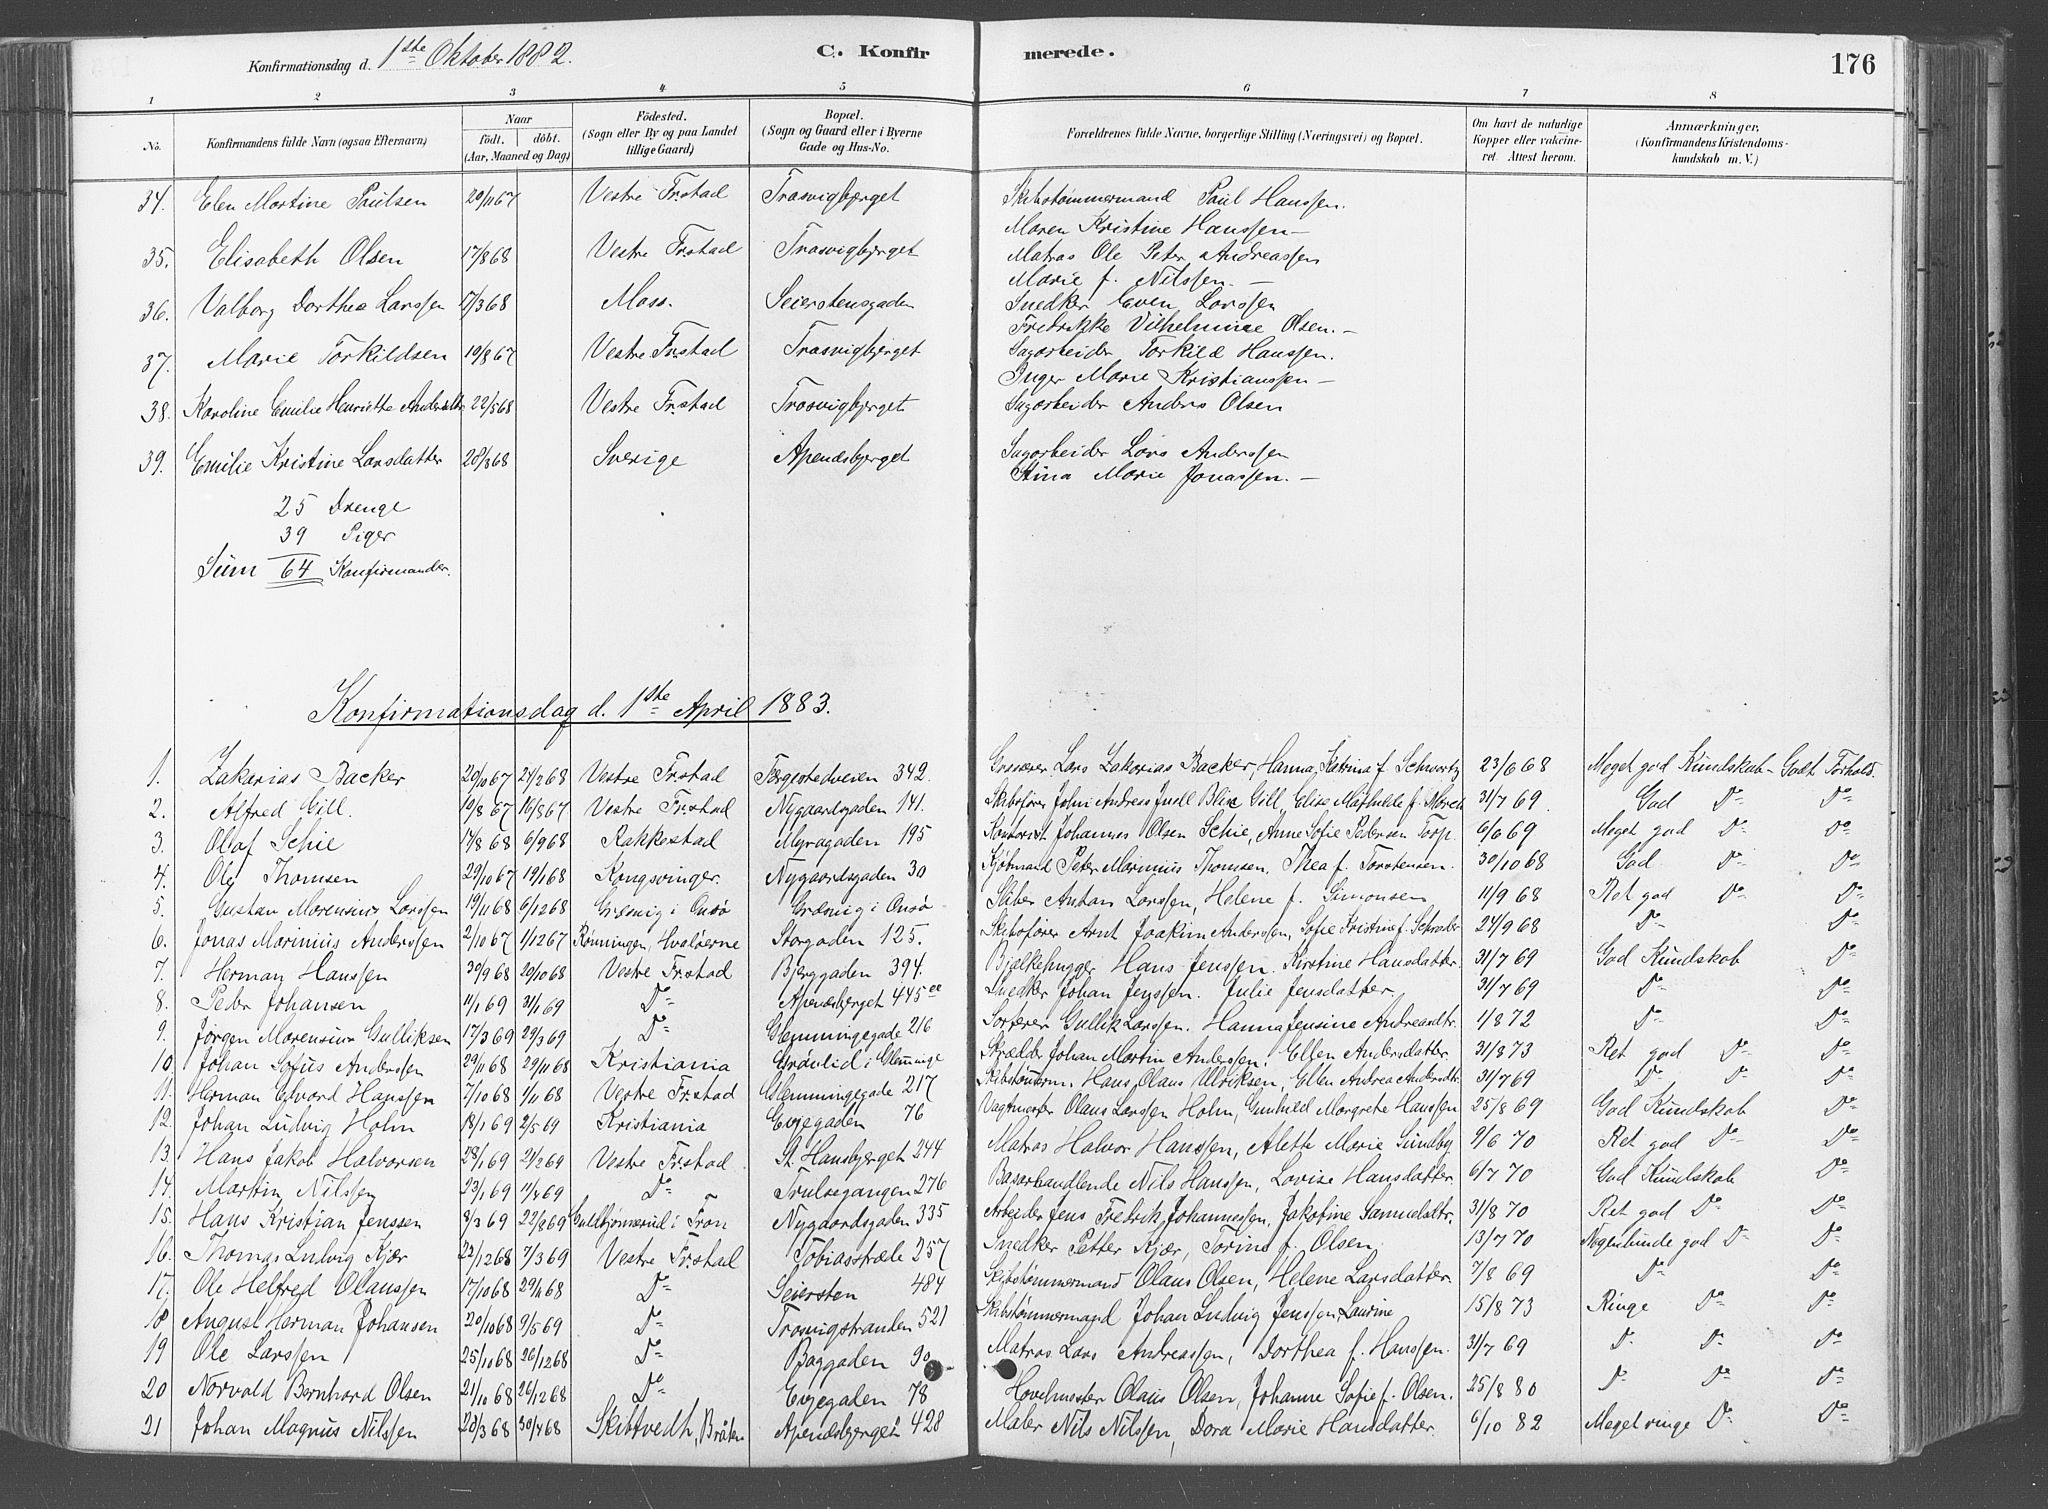 Konfirmationsdag d. 1ste Oktober 1882. C. Konfirmerede. 176
1 2 3 4 5 6 7 8
No. Konfirmandens fulde Navn (ogsaa Efternavn) Naar Født. døbt. (Aar, Maaned og Dag) Fødested. (Sogn eller By og paa Landet tillige Gaard) Bopæl. (Sogn og Gaard eller i Byerne Gade og Hus-No. Forældrenes fulde Navne, borgerlige Stilling (Næringsvei) og Bopæl. Om havt de naturlige Kopper eller vakcineret. Attest herom. Anmærkninger. (Konfirmandens Kristendomskundskab m. V.)
34. Elen Martine Paulsen 20/11 67 Vestre Fr.stad Trosvigbjerget Skibstømmermand Paul Hanssen.
Maren Kristine Hanssen –
35. Elisabeth Olsen 17/8 68 Vestre Fr.stad Trosvigbjerget Matros Ole Peter Andreassen
Marie f. Nilssen. –
36. Valborg Dorthea Larssen 17/3 68 Moss. Seierstensgaden Snedker Even Larssen
Fredrikke Vilhelmine Olsen. –
37. Marie Torkildsen 19/8 67 Vestre Fr.stad Trosvigbjerget Sagarbeider Torkild Hanssen.
Inger Marie Kristianssen –
38. Karoline Emilie Henriette 22/5 68 Vestre Fr.stad Trosvigbjerget Sagarbeider Anders Olsen
39. Emilie Kristine Larsdatter 28/3 68 Sverige Apenæsbjerget Sagarbeider Lars Anderssen
Stina Marie Jonassen. –
25 Drenge
39 Piger
Sum 64 Konfirmander.
Konfirmationsdag d. 1ste April 1883.
1. Zakarias Backer 20/10 67 24/2 68 Vestre Fr.stad Færgestedveien 342. Lars Zakarias Backer, Hanna Katrina f. Schwartz 23/6 68 Meget god Kundskab – Godt Forhold.
2. Alfred Gill. 19/8 67 16/8 67 Vestre Fr.stad Nygaardsgaden 141. Skibsfører John Andreas Juell Blix Gill, Elise Mathilde f. 31/7 69. God Do Do
3. Olaf Schie 14/8 68 6/9 68 Rakkestad Myragaden 195 Kontorist Johannes Olsen Schie, Anne Sofie Petersen Torp. 6/6 69 Meget god Do Do
4. Ole Thomsen 29/10 67 19/1 68 Kongsvinger. Nygaardsgaden 30 Kjøbmand Peter Marinius Thomsen. Thea f. Torstensen. 30/10 68 God. Do Do
5. Gustav Morensius Larssen 19/11 68 6/12 68 Græsvig i Onsø Græsvig i Onsø Anton Larssen, Helene f. Simonsen 11/9 68 Ret god Do Do
6. Jonas Marinius Anderssen 2/10 67 1/12 67 Rønningen, Hvaløerne Storgaden 125. Skibsfører Arnt Joakim Anderssen, Sofie Kristine f. Schrøder 24/9 68 Do Do
7. Herman Hanssen 30/9 68 20/10 68 Vestre Fr.stad Bjerggaden 394. Bjelkehugger Hans Jenssen. Kirstine Hansdatter. 31/7 69 God Kundskab Do
8. Peder Johansen 11/1 69 31/1 69 Do Apenæsbjerget 445 Snedker Johan Jenssen. Julie Jensdatter 31/7 69 Do Do
9. Jørgen Morensius Gulliksen 17/3 69 29/3 69 Do Glemmingegade 216 Sorterer Gullik Larssen. Hanna Jensine Andreasdtr. 1/8 72 Do Do
10. Johan Sofus Anderssen 29/1 68 29/11 68 Kristiania Grøvlid i Glemminge Skrædder Johan Martin Anderssen. Ellen Andersdatter 31/8 73 Ret god Do Do
11. Herman Edvard Hanssen 7/10 68 1/11 68 Vestre Fr.stad Glemmingegade 217 Skibstømm. Hans Olaus Ulriksen, Ellen Andrea Andersdtr. 31/7 69 Do Do Do
12. Johan Ludvig Holm 18/1 69 2/5 69 Kristiania Evjegaden 76 Vagtmester Olaus Larssen Holm, Gunhild Margrethe Hanssen 25/8 69 God Kundskab Do
13. Hans Jakob Halvorsen 28/1 69 21/2 69 Vestre Fr.stad St. Hansbjerget 244 Matros Halvor Hanssen, Aleth Marie Sundby 9/6 70 Ret god Do Do
14. Martin Nilssen 23/1 69 11/4 69 Do Trulsegangen 276 Nils Hanssen, Lovise Hansdatter. 6/7 70 God Kundskab Do
15. Hans Kristian Jenssen 8/3 69 22/8 69 i Tron Nygaardsgaden 335 Arbeider Jens Fredrik Johannessen. Jakobine Samueldtr. 31/8 70 Ret god Do Do
16. Thomas Ludvig Kjær 22/12 68 7/3 69 Vestre Fr.stad Tobiasstræde 257 Snedker Petter Kjær, Torine f. Olsen 13/7 70 Nogenlunde god Do Do
17. Ole Helfred Olaussen 17/10 68 29/11 68 Do Seiersten 484 Skibstømmermand Olaus Olsen, Helene Larsdatter. 7/8 69 Do Do
18 August Herman Johansen 20/10 68 9/5 69 Do Trosvigstranden 521 Skibstømmermand Johan Ludvig Jenssen, Laurine 15/8 73 Ringe Do Do
19 Ole Larssen 25/10 68 26/12 68 Do Baggaden 90 Matros Lars Andreassen, Dorthea f. Hanssen. 31/7 69 Do Do Do
20 Norvald Bernhard Olsen 21/10 68 26/12 68 Do Evjegaden 78 Hovelmester Olaus Olsen, Johanne Sofie f. Olsen. 25/8 80 Do Do Do
21 Johan Magnus Nilssen 28/3 68 30/4 68 Skibtvedt, Bråten Apenæsbjerget 428 Maler Nils Nilssen, Dora Marie Hansdatter. 6/10 82 Meget ringe Do Do